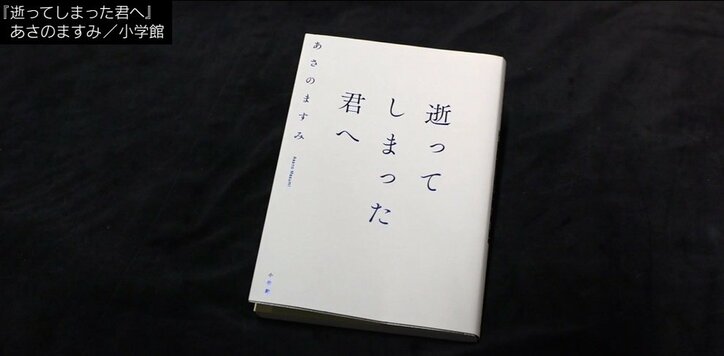 『逝ってしまった君へ』
あさのますみ／小学館
逝って
しまった
君へ
あさのますみ
Asano Masumi
小学館